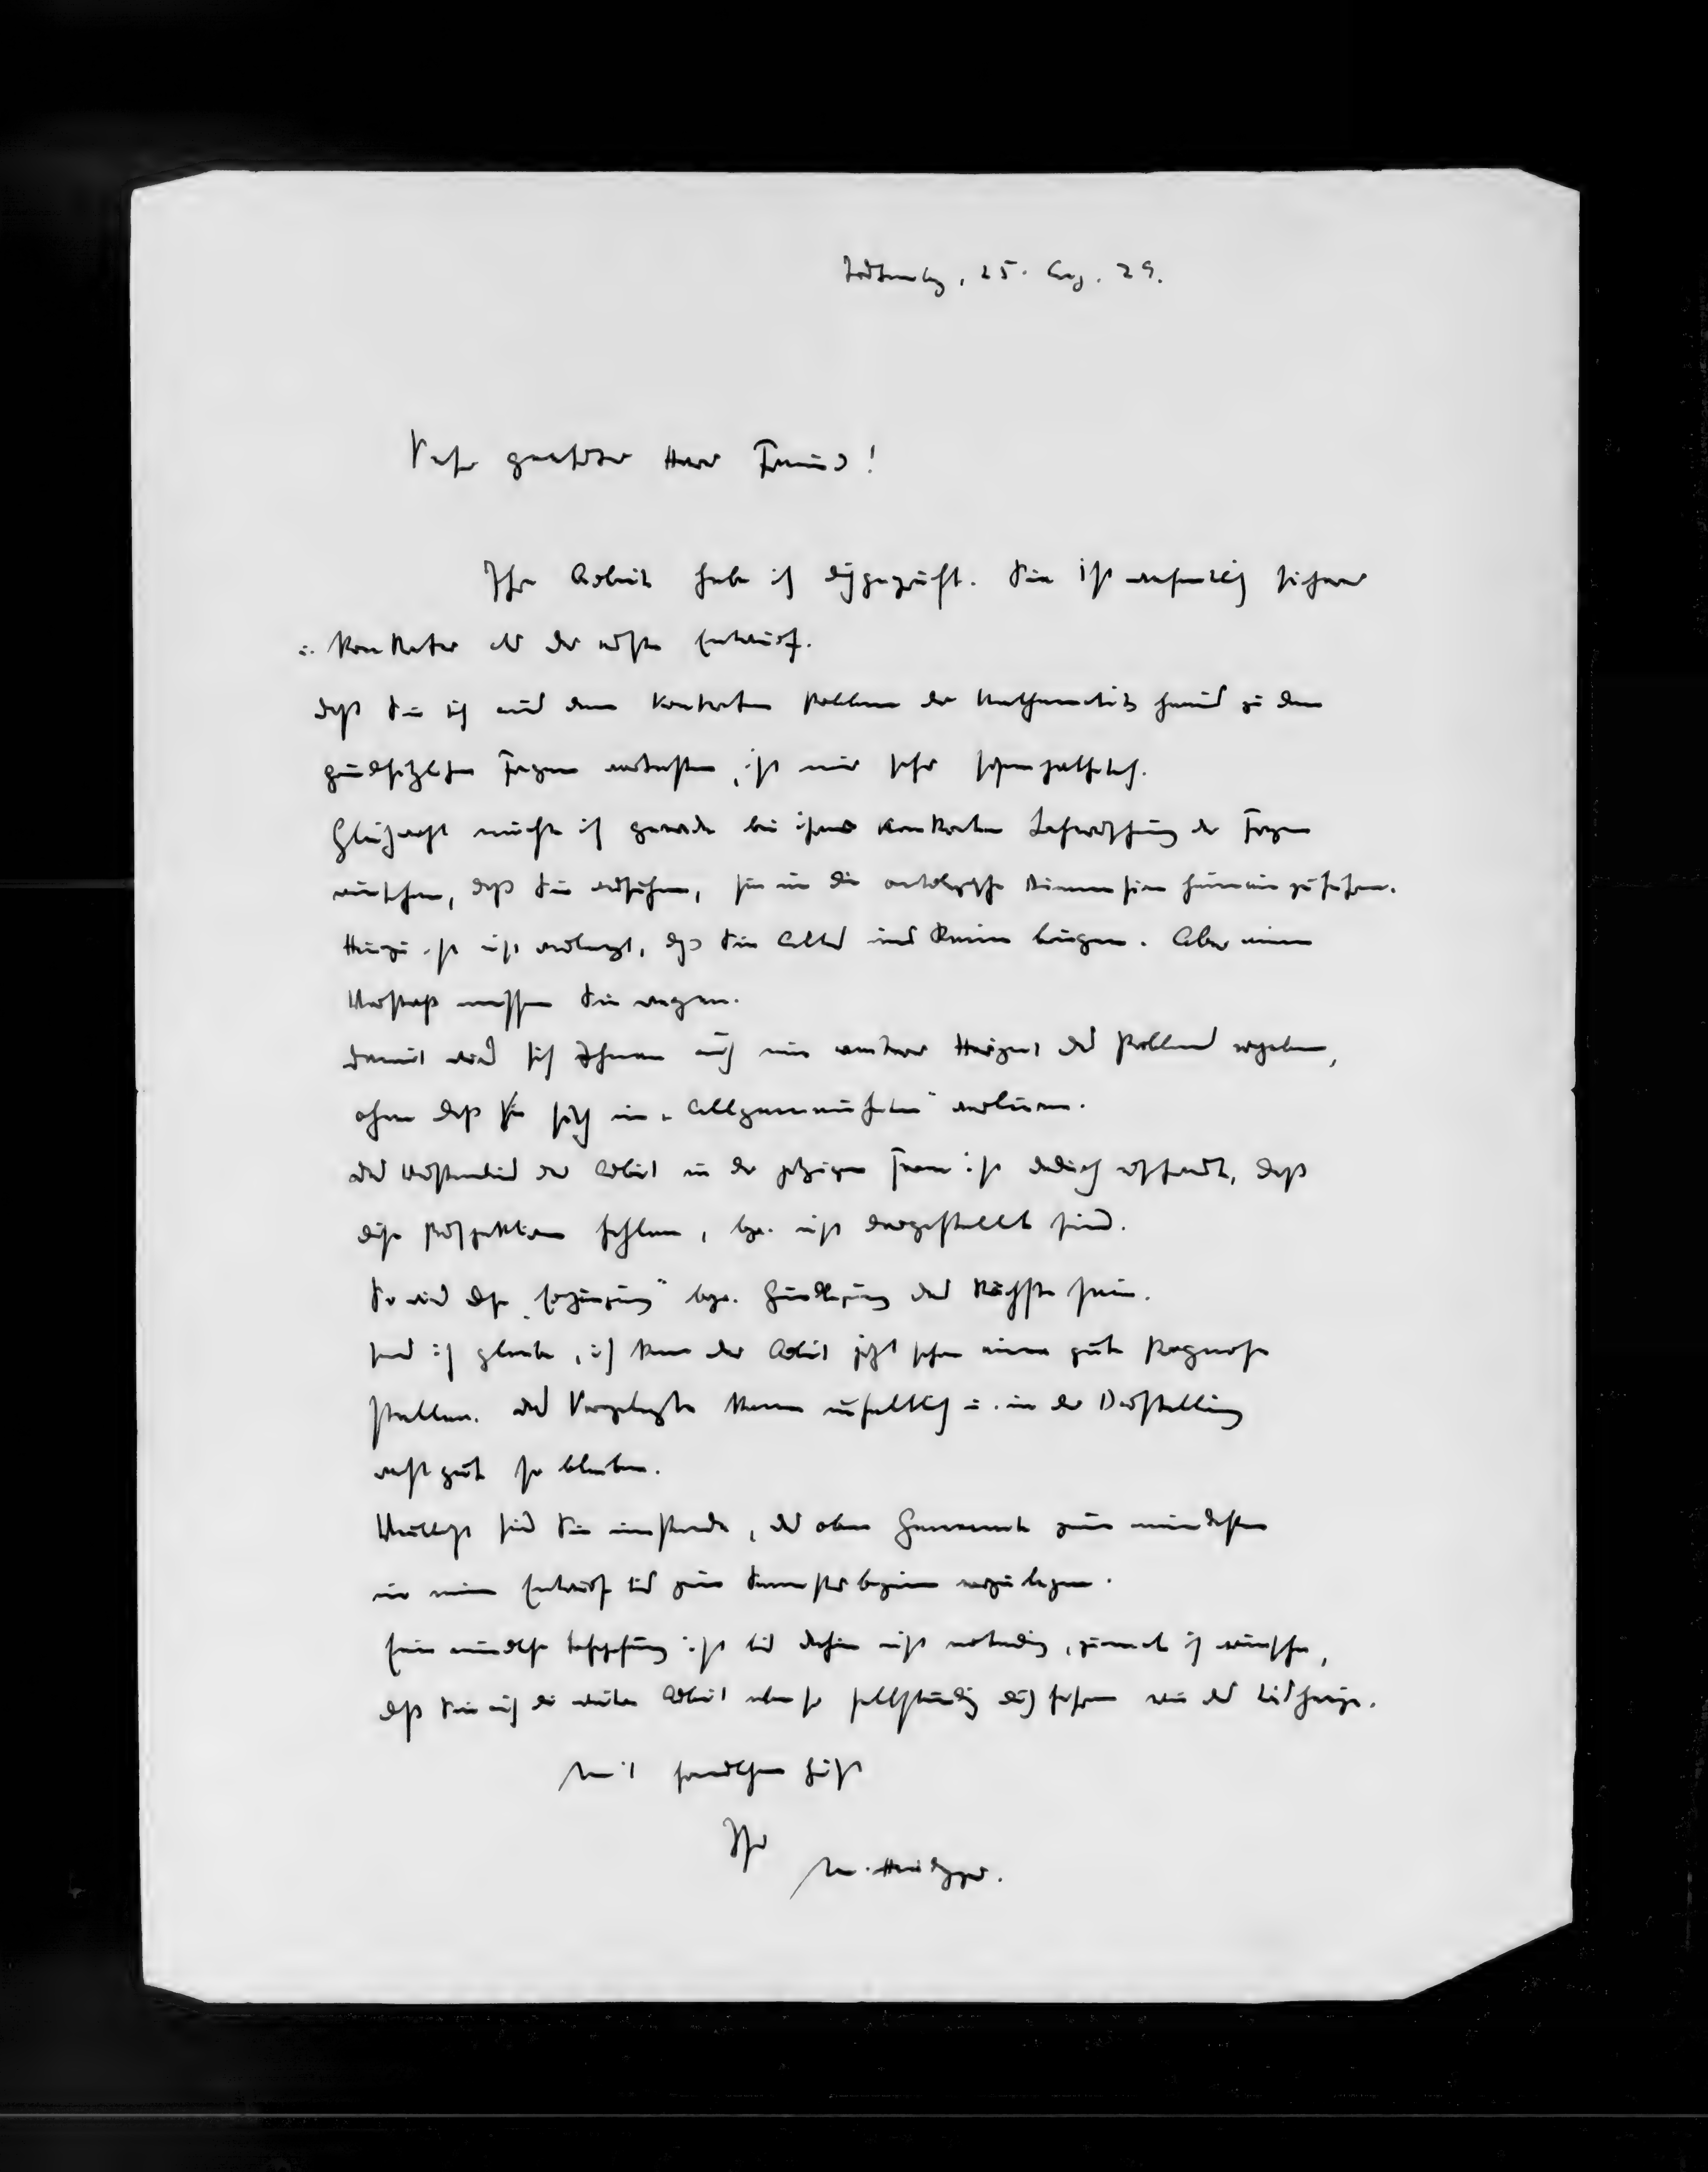 Todtnaubg, 25. Aug. 29.
Sehr geehrter Herr Freund!
Ihre Arbeit habe ich durchgeprüft. Sie ist wesentlich sicherer
u. konkreter als der erste Entwurf.
Daß Sie sich aus dem konkreten Problem der Mathematik heraus zu den
grundsätzlichen Fragen vortasten, ist mir sehr sympathisch.
Gleichwohl möchte ich gerade bei Ihrer konkreten der Fragen
wünschen, daß Sie versuchen, sie in die ontologische Dimension hineinzuführen.
Hierzu ist nicht verlangt, daß Sie Alles ins Reine bringen. Aber einen
Vorstoß müssen Sie wagen.
Damit wird sich Ihnen auch ein weiterer Horizont des Problems ergeben,
ohne daß Sie sich in „Allgemeinheiten" verlieren.
Das Verständnis der Arbeit in der jetzigen Form ist dadurch erschwert, daß
diese Perspektiven fehlen, bzw. nicht dargestellt sind.
So wird diese „Ergänzung" bzw. Grundlegung das Nächste sein.
Und ich glaube, ich kann der Arbeit jetzt schon eine gute Prognose
stellen. Das Vorgelegte kann inhaltlich u. in der Darstellung
recht gut so bleiben.
Vielleicht sind Sie imstande, das oben Genannte zum mindesten
in einem Entwurf bis zum Semesterbeginn vorzulegen.
Eine mündliche Besprechung ist bis dahin nicht notwendig, zumal ich wünsche,
daß Sie auch die weitere Arbeit ebenso selbständig durchführen wie das bisherige.
Mit freundlichem Gruß
Ihr
M. Heidegger.